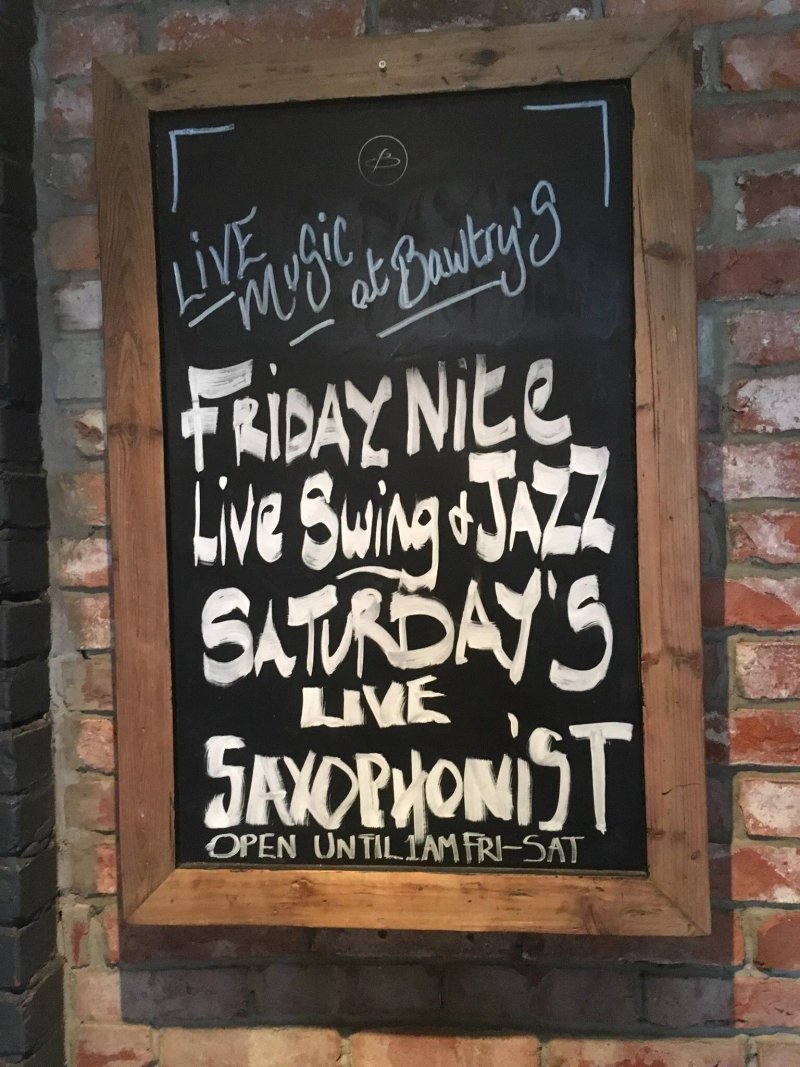 B
LiVE MuSiC at Bawtry'S
FRiDAY Nite
Live Swing & JAZZ
SATURDAY'S
LIVE
SAXOPHONiST
OPEN UNTIL 1AM FRI-SAT